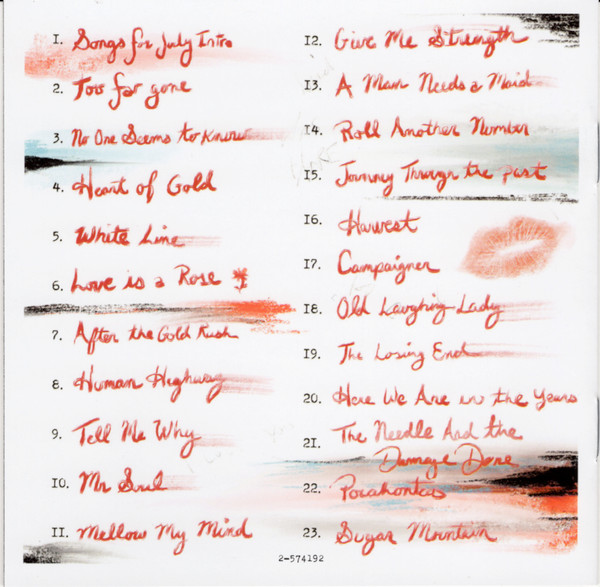 1. Songs for July Intro
2. Too far gone
3. No One Seems to Know
4. Heart of Gold
5. White Line
6. Love is a Rose
7. After the Gold Rush
8. Human Highway
9. Tell Me Why
10. Mr Soul
11. Mellow My Mind
12. Give Me Strength
13. A Man Needs a Maid
14. Roll Another Number
15. Journey Through the past
16. Harvest
17. Campaigner
18. Old Laughing Lady
19. The Losing End
20. Here We Are in the Years
21. The Needle And the
Damage Done
22. Pocahontas
23. Sugar Mountain
2-574192